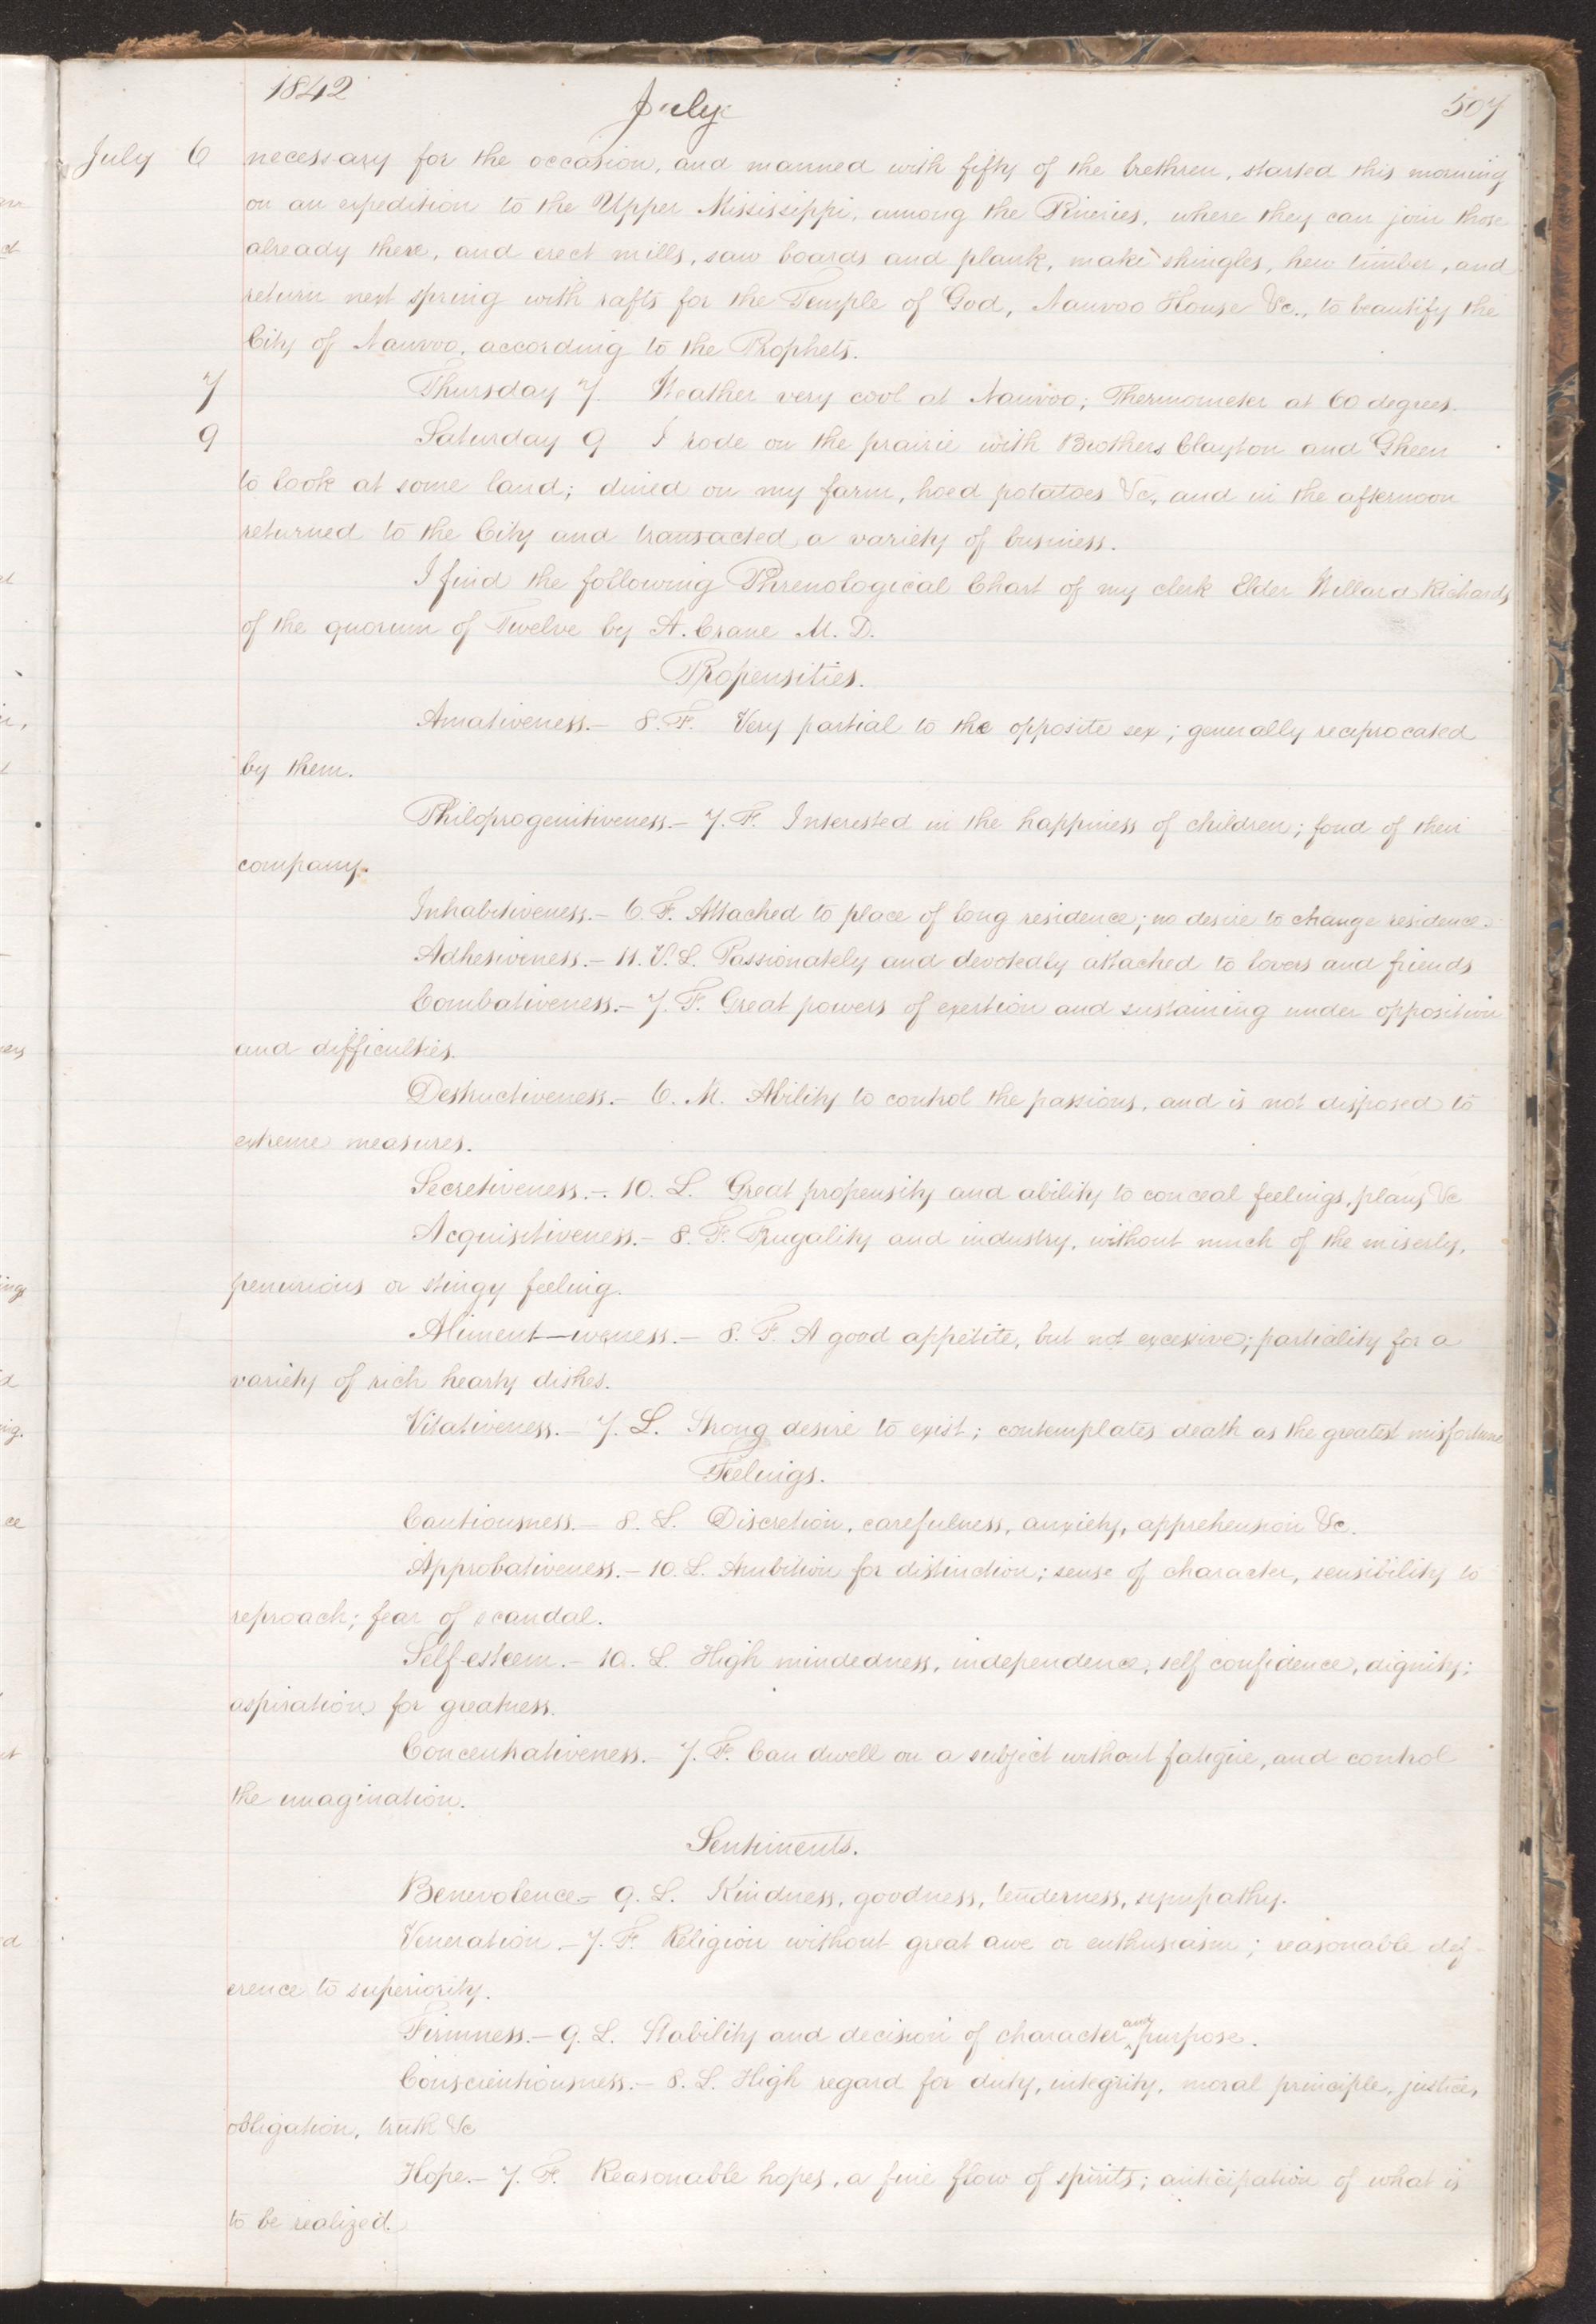 1842
July
507
July 6 necessary for the occasion, and manned with fifty of the brethren, started this morning
on an expedition to the Upper Mississippi, among the Pineries, where they can join those
already there, and erect mills, saw boards and plank, make shingles, hew timber, and
return next spring with rafts for the Temple of God, Nauvoo House &c., to beautify the
City of Nauvoo, according to the Prophets.
7 Thursday 7. Weather very cool at Nauvoo; Thermometer at 60 degrees.
9 Saturday 9 I rode on the prairie with Brothers Clayton and Gheen
to look at some land; dined on my farm, hoed potatoes &c, and in the afternoon
returned to the City and transacted a variety of business.
I find the following Phrenological Chart of my clerk Elder Willard Richards
of the quorum of Twelve by A. Crane M. D.
Propensities.
Amativeness.- 8. F. Very partial to the opposite sex; generally reciprocated
by them.
Philoprogenitiveness.- 7. F. Interested in the happiness of children; fond of their
company.
Inhabitiveness.- 6. F. Attached to place of long residence; no desire to change residence.
Adhesiveness.- 11. V. L. Passionately and devotedly attached to lovers and friends
Combativeness.- 7. F. Great powers of exertion and sustaining under opposition
and difficulties.
Destructiveness.- 6. M. Ability to control the passions, and is not disposed to
extreme measures.
Secretiveness.-. 10. L. Great propensity and ability to conceal feelings, plans &c
Acquisitiveness.- 8. F. Frugality and industry, without much of the miserly,
penurious or stingy feeling.
Aliment-iveness.- 8. F. A good appetite, but not excessive; partiality for a
variety of rich hearty dishes.
Vitativeness.- 7. L. Strong desire to exist; contemplates death as the greatest misfortune
Feelings.
Cautiousness.- 8. L. Discretion, carefulness, anxiety, apprehension &c.
Approbativeness.- 10. L. Ambition for distinction; sense of character, sensibility to
reproach; fear of scandal.
Self-esteem.- 10. L. High mindedness, independence, self confidence, dignity;
aspiration for greatness.
Concentrativeness.- 7. F. Can dwell on a subject without fatigue, and control
the imagination.
Sentiments.
Benevolence.- 9. L. Kindness, goodness, tenderness, sympathy.
Veneration.- 7. F. Religion without great awe or enthusiasm; reasonable def-
erence to superiority.
Firmness.- 9. L. Stability and decision of character and purpose.
Conscientiousness.- 8. L. High regard for duty, integrity, moral principle, justice,
obligation, truth &c
Hope.- 7. F. Reasonable hopes, a fine flow of spirits; anticipation of what is
to be realized.